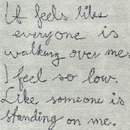 It feels like
everyone is
walking over me.
I feel so low.
Like someone is
standing on me.